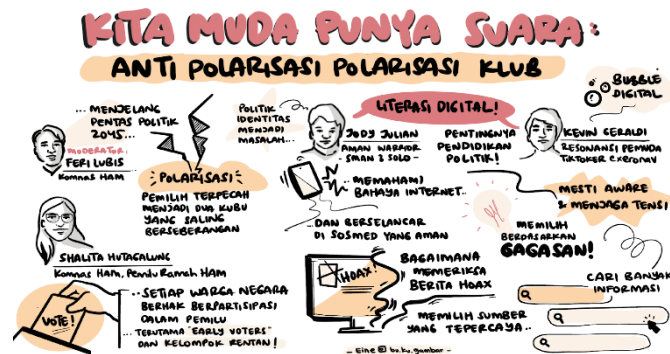 KITA MUDA PUNYA SUARA:
ANTI POLARISASI POLARISASI KLUB
... MENJELANG
PENTAS POLITIK
2045...
MODERATOR:
FERI LUBIS
KOMNAS HAM
POLARISASI
PEMILIH TERPECAH
MENJADI DUA KUBU
YANG SALING
BERSEBERANGAN
SHALITA HUTAGALUNG
KOMNAS HAM, PEMILU RAMAH HAM
VOTE!
... SETIAP WARGA NEGARA
BERHAK BERPARTISIPASI
DALAM PEMILU
... TERUTAMA "EARLY VOTERS"
DAN KELOMPOK RENTAN!
POLITIK
IDENTITAS
MENJADI
MASALAH...
LITERASI DIGITAL!
JODY JULIAN
AMAN WARRIOR
- SMAN 2 SOLO -
... MEMAHAMI
BAHAYA INTERNET..
... DAN BERSELANCAR
DI SOSMED YANG AMAN
HOAX!
BAGAIMANA
MEMERIKSA
BERITA HOAX
MEMILIH SUMBER
YANG TEPERCAYA..
PENTINGNYA
PENDIDIKAN
POLITIK!
BUBBLE
DIGITAL
KEVIN GERALDI
RESONANSI PEMUDA
MESTI AWARE
& MENJAGA TENSI
MEMILIH
BERDASARKAN
GAGASAN!
CARI BANYAK
INFORMASI